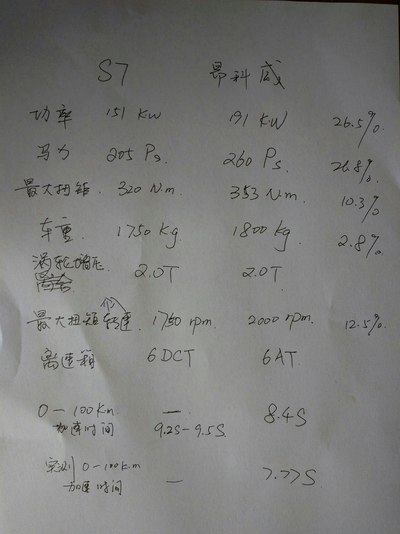 S7 昂科威
功率 151 KW 191 KW 26.5%
马力 205 Ps. 260 Ps. 26.8%
最大扭矩. 320 N.m. 353 N.m. 10.3%
车重 1750 Kg 1800 Kg. 2.8%
涡轮增压 2.0T 2.0T
最大扭矩转速 1750 rpm. 2000 rpm. 12.5%
离速箱 6DCT 6AT
0-100Km 加速时间 — 9.2S-9.5S. 8.4S
实测 0-100k.m 加速时间 — 7.77S